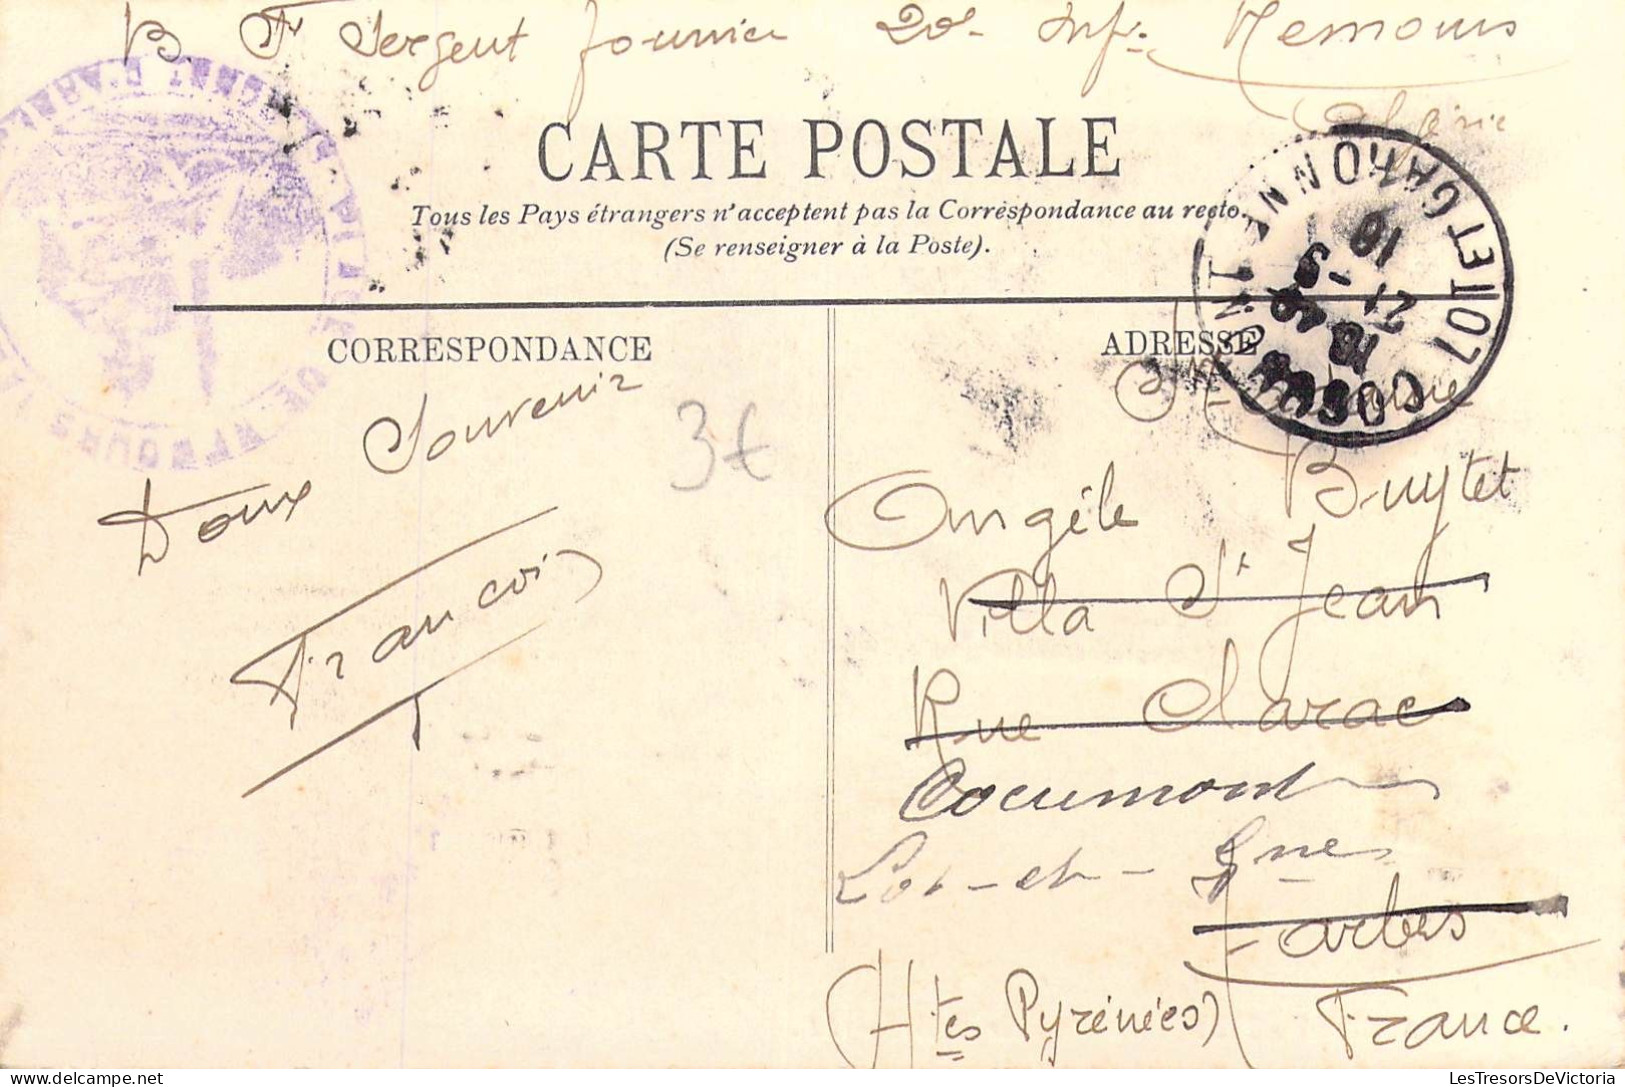 B. F Sergent fournier 2e Inf. Nemours
Algérie
CARTE POSTALE
Tous les Pays étrangers n'acceptent pas la Correspondance au recto.
(Se renseigner à la Poste).
COCUMONT LOT ET GARONNE
10
21 -9
CORRESPONDANCE
ADRESSE
Doux Souvenir
François
3€
Angèle Buytet
Villa St Jean
Rue Clarac
Cocumont
Lot-et-Gne
Tarbes
(Htes Pyrénées) France.
LesTresorsDeVictoria